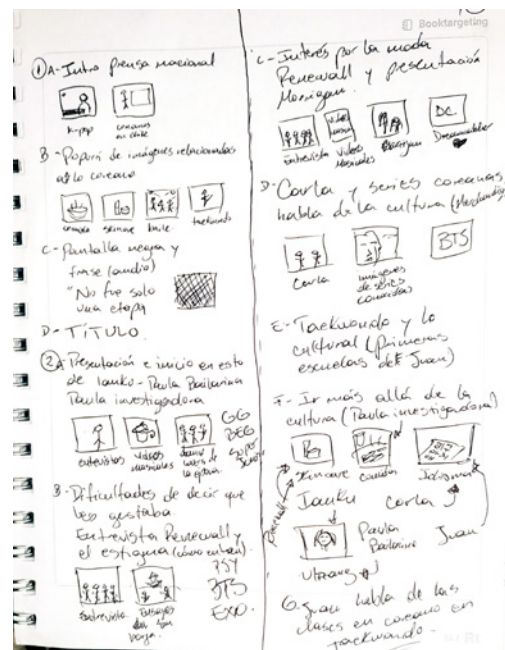 Booktargeting
① A- Intro prensa nacional
k-pop
coreanos en chile
B- Popurrí de imágenes relacionadas
a lo coreano
comida skincare baile taekwondo
C- Pantalla negra y
frase (audio)
"No fue solo
una etapa
D- TÍTULO.
② A- Presentación e inicio en esto
de Ianku - Paula Bailarina
Paula investigadora
entrevistas videos musicales
GG
BEG
B- Dificultades de decir que
les gustaba.
Entrevista Renewall y
el estigma
PSY
BTS
EXO.
Entrevista Ensayos
C- Interés por la moda
Renewall y presentación
Morrigan.
Entrevista Videos Musicales Morrigan
DC.
D- Carla y series coreanas
habla de la cultura
Carla
imágenes de series coreanas
BTS
E- Taekwondo y lo
cultural (Primeras
escuelas de Juan)
F- Ir más allá de la
cultura (Paula investigadora)
skincare comidas idioma
Renewall
Ianku Carla
Paula
Bailarina Juan
G. Juan habla de las
clases en coreano en
Taekwondo.